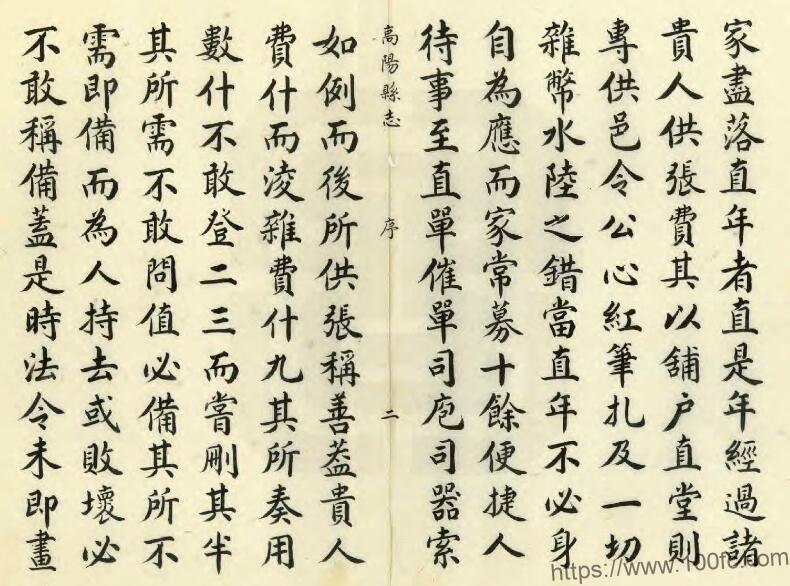 家盡落直年者直是年經過諸
貴人供張費其以舖户直堂則
專供邑令公心紅筆扎及一切
雜幣水陸之錯當直年不必身
自為應而家常募十餘便捷人
待事至直單催單司庖司器索
高陽縣志 序 二
如例而後所供張稱善蓋貴人
費什而淩雜費什九其所奏用
數什不敢登二三而嘗刪其半
其所需不敢問值必備其所不
需即備而為人持去或敗壞必
不敢稱備蓋是時法令未即畫
https://www.100fc.com